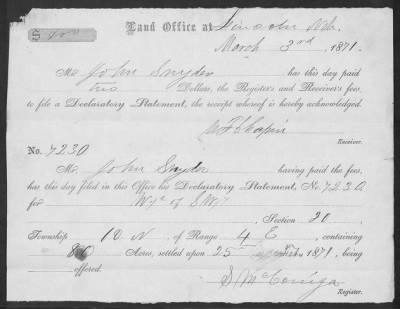 Land Office at Lincoln Neb.
March 3rd, 1871.
Mr. John Snyder has this day paid
two Dollars, the Register's and Receiver's fees,
to file a Declaratory Statement, the receipt whereof is hereby acknowledged.
Receiver.
No. 7230
Mr. John Snyder having paid the fees,
has this day filed in this Office his Declaratory Statement, No. 7230
for W½ of SW¼
, Section 20,
Township 10 N, of Range 4 E, containing
80 Acres, settled upon 25th 1871, being
offered.
Register.